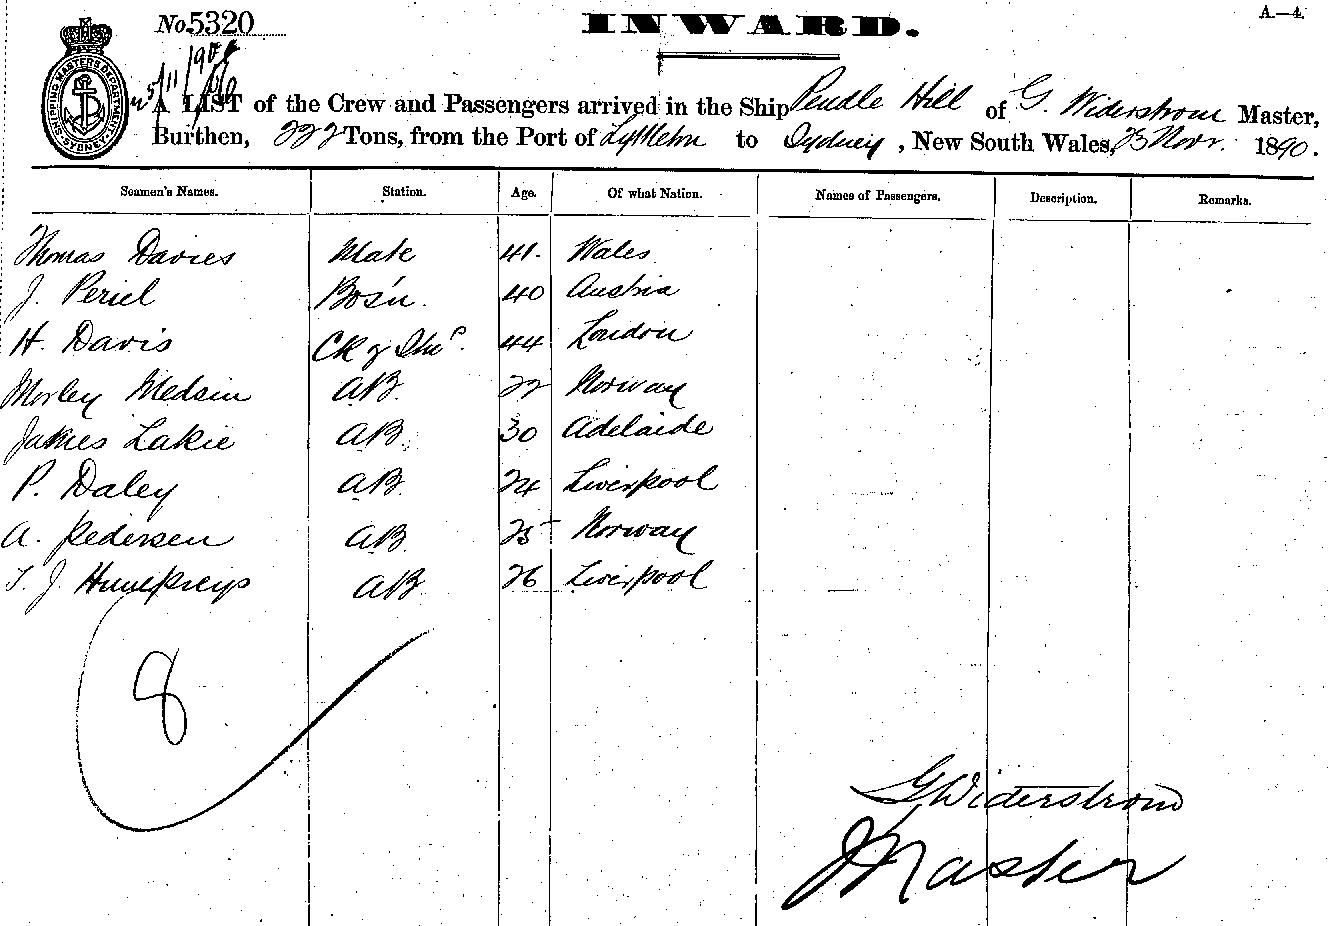 No. 5320
INWARD.
A.—4.
SHIPPING MASTERS DEPARTMENT SYDNEY
A LIST of the Crew and Passengers arrived in the Ship Pendle Hill of G. Widerstrom Master,
Burthen, 222 Tons, from the Port of Lyttleton to Sydney, New South Wales, 23 Novr. 1890.
Seamen's Names. Station. Age. Of what Nation. Names of Passengers. Description. Remarks.
Thomas Davies Mate 41. Wales
J. Periel Bos'n. 40 Austria
H. Davis Ck & Stwd. 44 London
Morley Medsin AB. 22 Norway
James Lakie AB. 30 Adelaide
P. Daley AB. 24 Liverpool
A. Pedersen AB 25 Norway
T. J. Humphreys AB. 26 Liverpool
8
G Widerstrom
Master